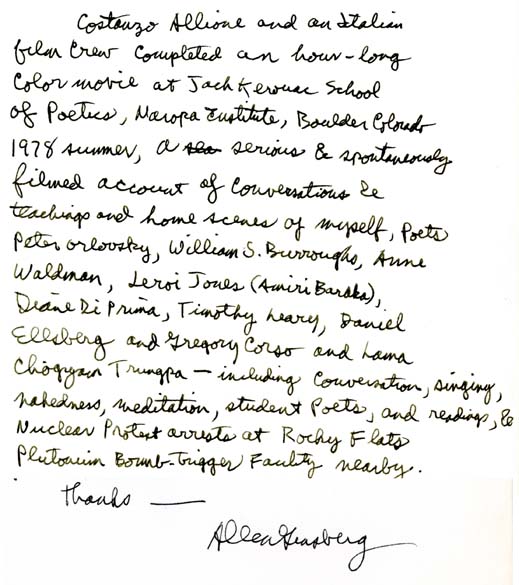 Costanzo Allione and an Italian
film Crew Completed an hour-long
Color movie at Jack Kerouac School
of Poetics, Naropa Institute, Boulder Colorado
1978 summer, a serious & spontaneously
filmed account of Conversations &
teachings and home scenes of myself, Poets
Peter Orlovsky, William S. Burroughs, Anne
Waldman, Leroi Jones (Amiri Baraka),
Diane Di Prima, Timothy Leary, Daniel
Ellsberg and Gregory Corso and Lama
Chögyam Trungpa — including Conversation, singing,
nakedness, meditation, student Poets, and readings, &
Nuclear Protest arrests at Rocky Flats
Plutonium Bomb-trigger Facility nearby.
Thanks —
Allen Ginsberg